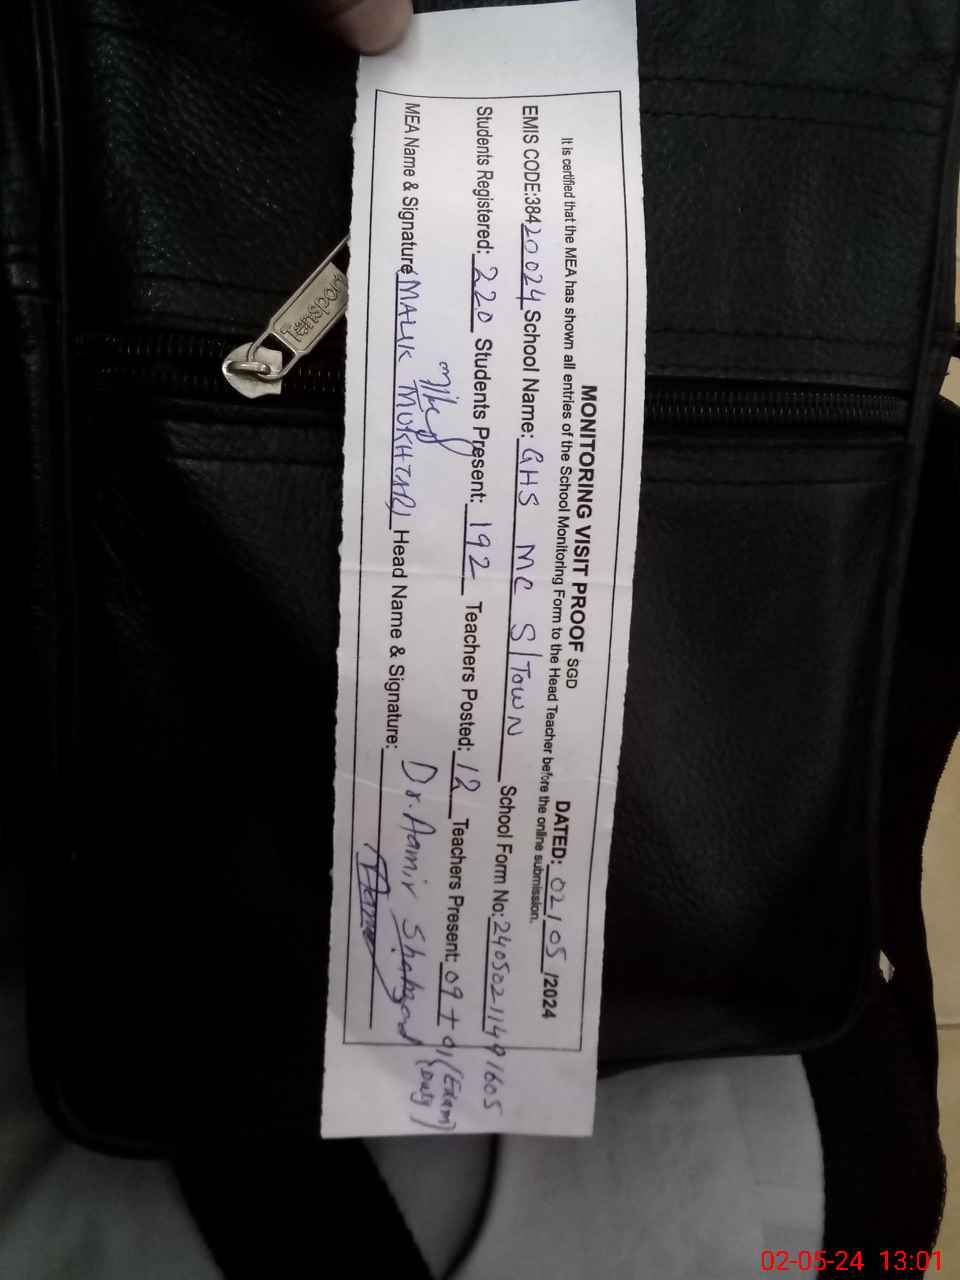 MONITORING VISIT PROOF SGD DATED: 02/05/2024
It is certified that the MEA has shown all entries of the School Monitoring Form to the Head Teacher before the online submission.
EMIS CODE:38420024 School Name: GHS MC S/TOWN School Form No: 24050211491605
Students Registered: 220 Students Present: 192 Teachers Posted: 12 Teachers Present: 09 + 01 (Exam Duty)
MEA Name & Signature MALIK MUKHTAR Head Name & Signature: Dr. Aamir Shahzad
02-05-24 13:01